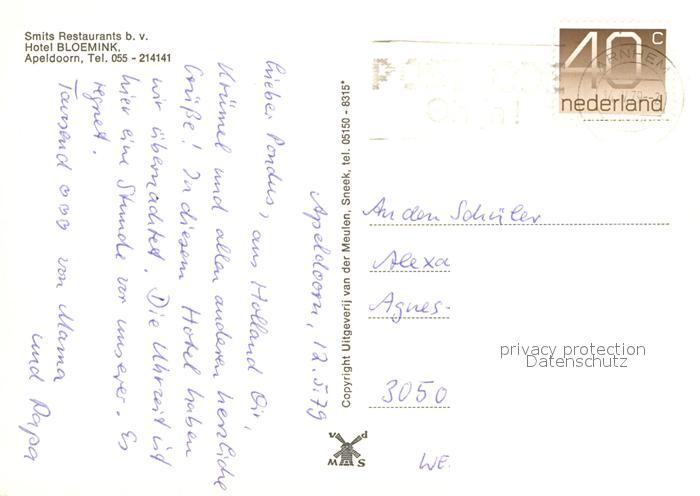 Smits Restaurants b. v.
Hotel BLOEMINK,
Apeldoorn, Tel. 055 - 214141
Apeldoorn, 12.5.79
Lieber Pondus, aus Holland Dir,
Krümel und allen anderen herzliche
Grüße! In diesem Hotel haben
wir übernachtet. Die Uhrzeit ist
hier eine Stunde vor unserer. Es
regnet.
Tausend von Mama
und Papa
Copyright Uitgeverij van der Meulen, Sneek, tel. 05150 - 8315*
v d
M S
40 c
nederland
ARNHEM
An den Schüler
Alexa
Agnes-
3050
WE.
privacy protection
Datenschutz